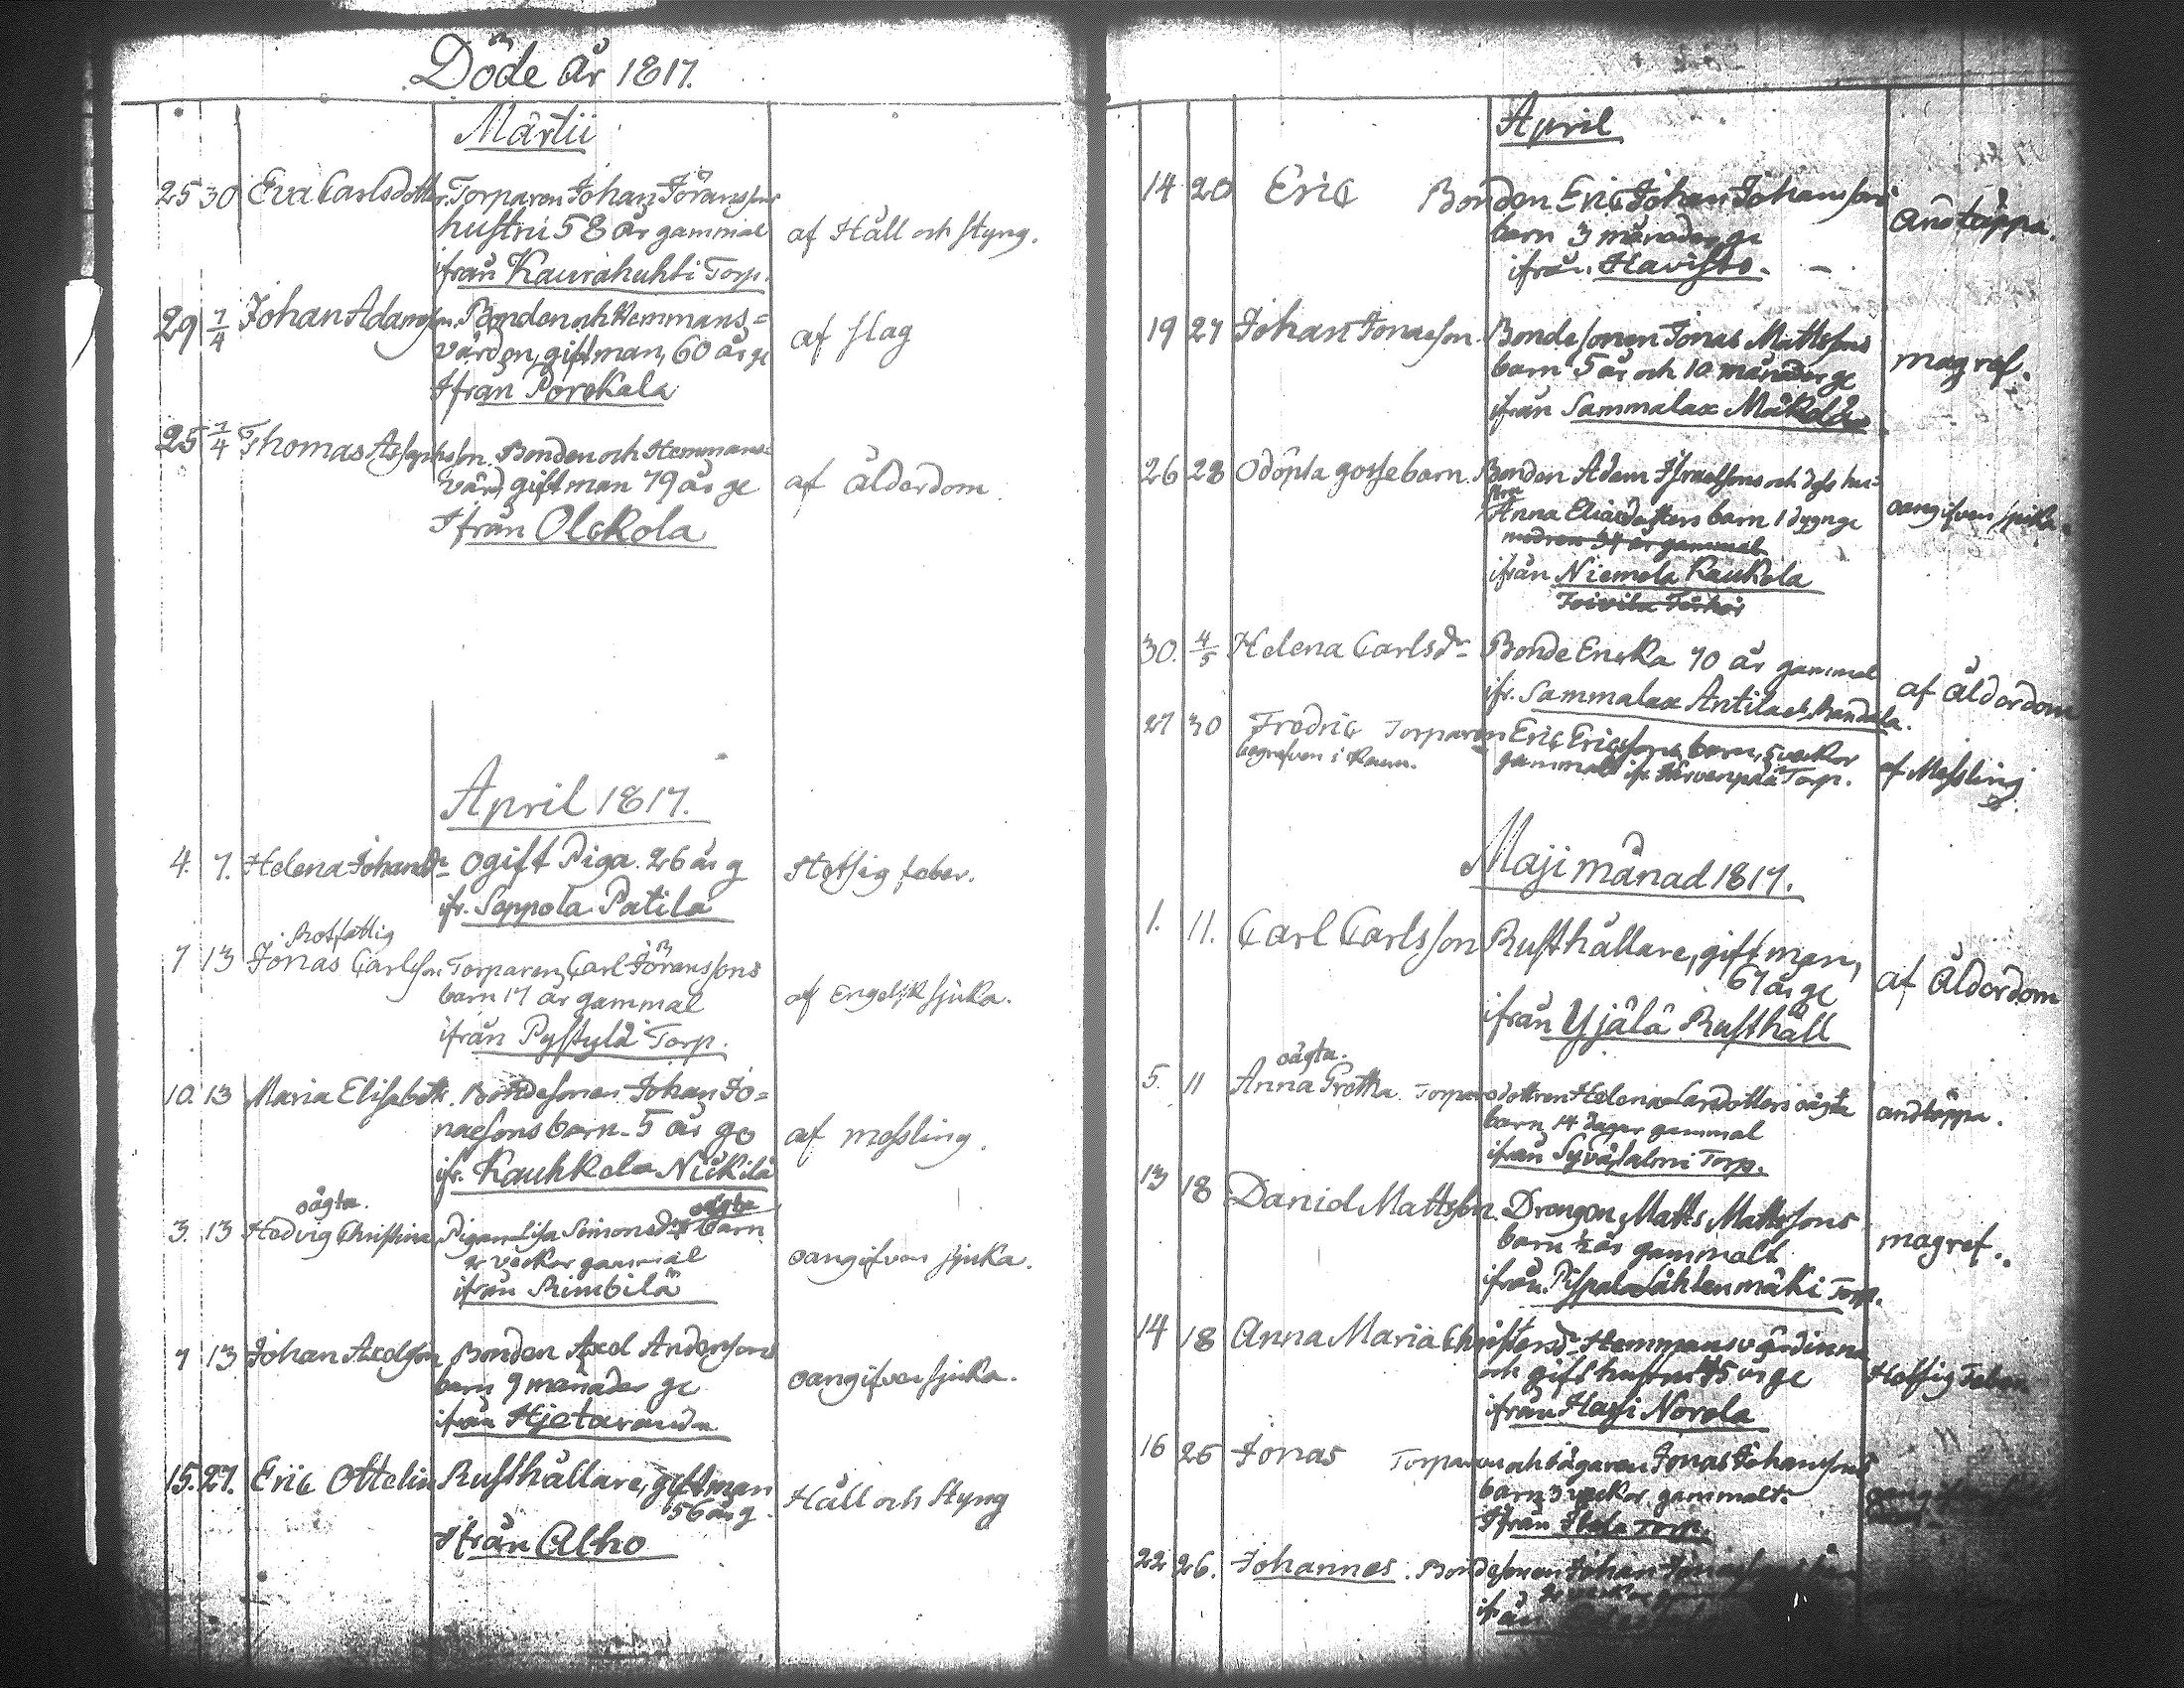 Döde år 1817.
Martii
25 30 Eva Carlsdotter. Torparen Johan Jöranssons
hustru 58 år gammal af Håll och styng.
ifrån Kaurahuhti Torp.
29 1/4 Johan Adamsson. Bonden och Hemmans=
värden, gift man, 60 år ge af slag
Ifrån Porokala
25 1/4 Thomas Bonden och Hemmans=
värd, gift man 79 år ge af ålderdom.
Ifrån Olckola
April 1817.
4. 7. Helena Johansdr Ogift Piga. 26 år g Hetsig feber.
ifr. Soppola Patila
Rotfattig
7 13 Jonas Carlsson Torparen Carl Jöranssons
barn 17 år gammal af Engelsk sjuka.
ifrån Pystylä Torp.
10. 13 Maria Elisabeth. Bondesonen Johan Jo=
naesons barn. 5 år ge af messling.
ifr. Kauhkola Nickilä
oägta. oägta
3. 13 Hedvig Christina Pigan Lisa Simonsdrs barn
2 veckor gammal oangifven sjuka.
ifrån Rimbilä
7 13 Johan Axelsson Bonden Axel Anderssons
barn 9 månader ge oangifven sjuka.
ifrån Hjetaranda.
15. 27. Eric Ottelin Rusthållare, gift man
56 år g. Håll och styng
Ifrån Alho
April
14 20 Eric Bonden Eric Johan Johanssons
barn 3 månader ge andtäppa.
ifrån Havisto. –
19 27 Johan Jonaeson. Bondesonen Jonas Mattssons
barn 5 år och 10 månader ge magref.
ifrån Sammalax Mäkelä
26 28 Odöpta gossebarn. Bonden Adam Israelssons och dess hu=
stru
Anna Eliaedotters barn 1 dygn ge oangifven sjuka.
modren 34 år gammal
ifrån Niemela Kaukola
Toivila
30. 4/5 Helena Carlsdr Bonde Enka 70 år gammal
ifr. Sammalax Antila af ålderdom
27 30 Fredric Torparen Eric Ericssons barn, 5 veckor
begrafven i gammalt ifr. Järvenpää Torp. af Messling
Maji månad 1817.
1. 11. Carl Carlsson Rusthållare, gift man,
67 år ge af ålderdom
ifrån Yjälä Rusthåll
oägta.
5. 11 Anna Gretha. Torparedottren Helena Larsdotters oägta
barn 14 dagar gammal andtäppa.
ifrån Syväsalmi Torp.
13 18 Daniel Mattsson. Drengen Matts Mattssons
barn ½ år gammalt magref.
ifrån Pispala Lähtenmäki Torp.
14 18 Anna Maria Christersdr Hemmansvärdinna
och gift hustru 45 år ge Hetsig Feber
ifrån Harji Norola
16 25 Jonas Torparen och bägaren Jonas Johanssons
barn 3 veckor gammalt. oangifven
Ifrån Torp.
22 26. Johannes. Bondesonen Johan
ifrån